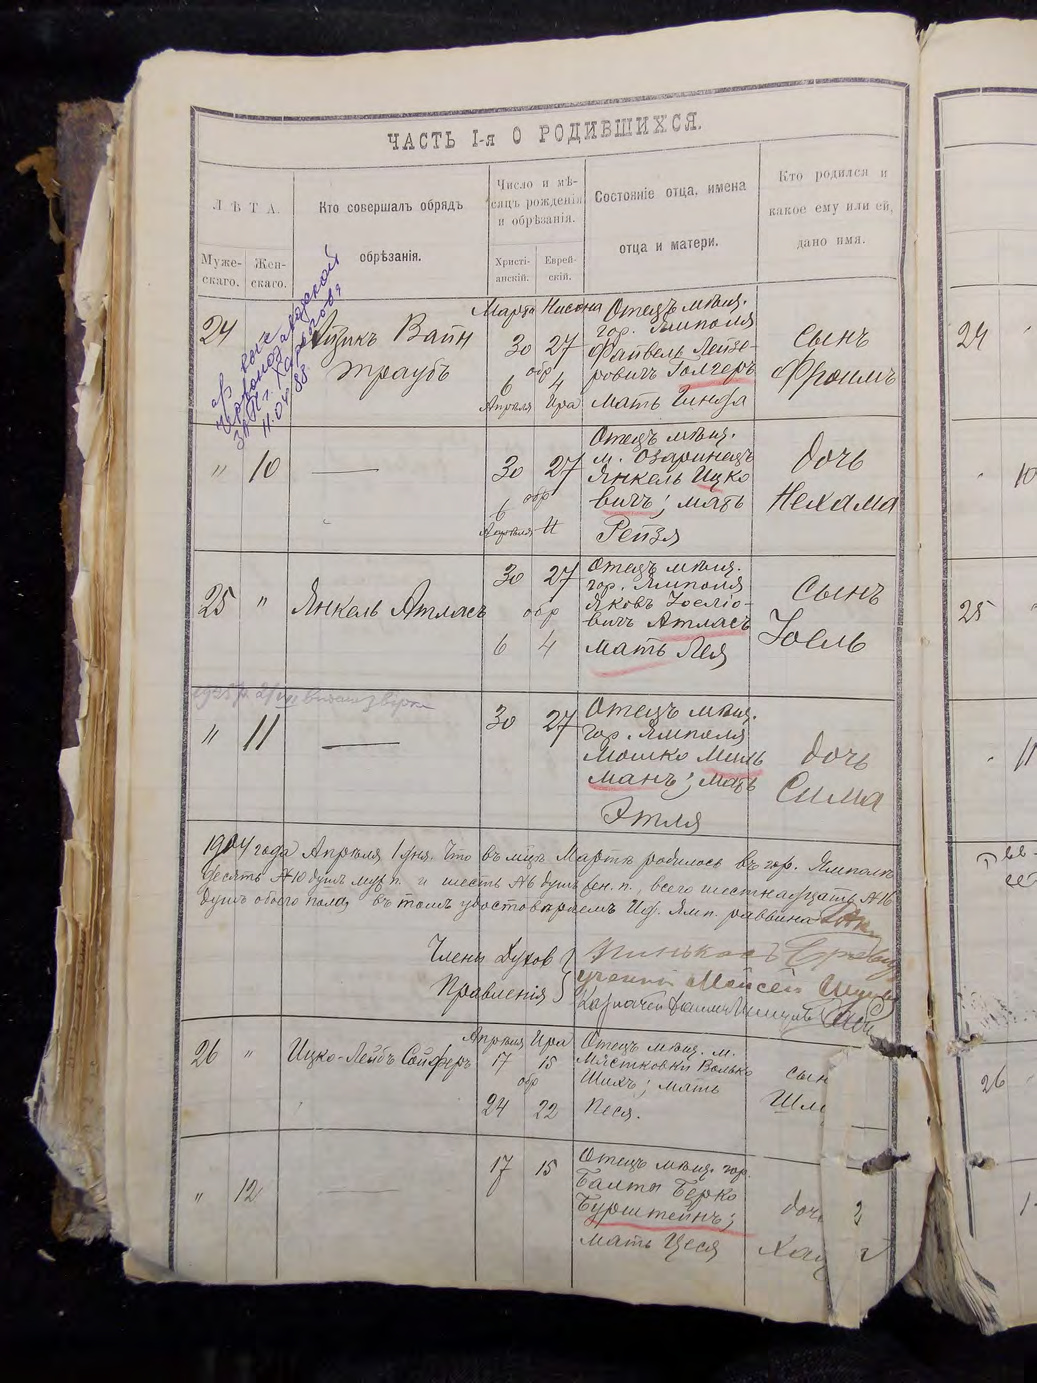 ЧАСТЬ I-я О РОДИВШИХСЯ.
ЛѢТА.
Муже-
скаго.
Жен-
скаго.
Кто совершалъ обрядъ
обрѣзанія.
Число и мѣ-
сяцъ рожденія
и обрѣзанія.
Христі-
анскій.
Еврей-
скій.
Состояніе отца, имена
отца и матери.
Кто родился и
какое ему или ей,
дано имя.
11.04 88
24
Ицикъ Вайн
траубъ
Марта Нисона
30 27
обр
6 4
Апрѣля Ира
Отецъ мѣщ.
гор. Ямполя
Файвель Лейзе-
ровичъ Голгеръ
мать
сынъ
Фроимъ
24
" 10
30 27
обр
6
Апрѣля И
Отецъ мѣщ.
м. Озаринецъ
Янкель Ицко
вичъ; мать
Рейзя
дочь
Нехама
10
25 "
Янкель Атласъ
30 27
обр
6 4
Отецъ мѣщ.
гор. Ямполя
Яковъ Іосліо-
вичъ Атласъ
мать Лея
сынъ
Іосль
25
" 11
30 27
Отецъ мѣщ.
гор. Ямполя
Мошко Миль
манъ; мать
Этля
дочь
Сима
11
1904 года Апрѣля 1 дня. Что въ мцѣ Мартѣ родилось въ гор. Ямполѣ
десять №10 душъ муж. п. и шесть №6 душъ жен. п., всего шестнадцать №16
душъ обоего пола, въ томъ удостовѣряемъ Ис. Ямп. раввина
Члены Духов
Правленія
ученый Мойсей
Казначей
26 "
Ицко-Лейбъ Сойферъ
Апрѣля Ира
17 15
обр
24 22
Отецъ мѣщ. м.
Мястковки Волько
Шихъ; мать
Песя.
сын
Шл
26
" 12
17 15
Отецъ мѣщ. гор.
Балты Берко
Бурштейнъ;
мать Цеся
доч
Ха